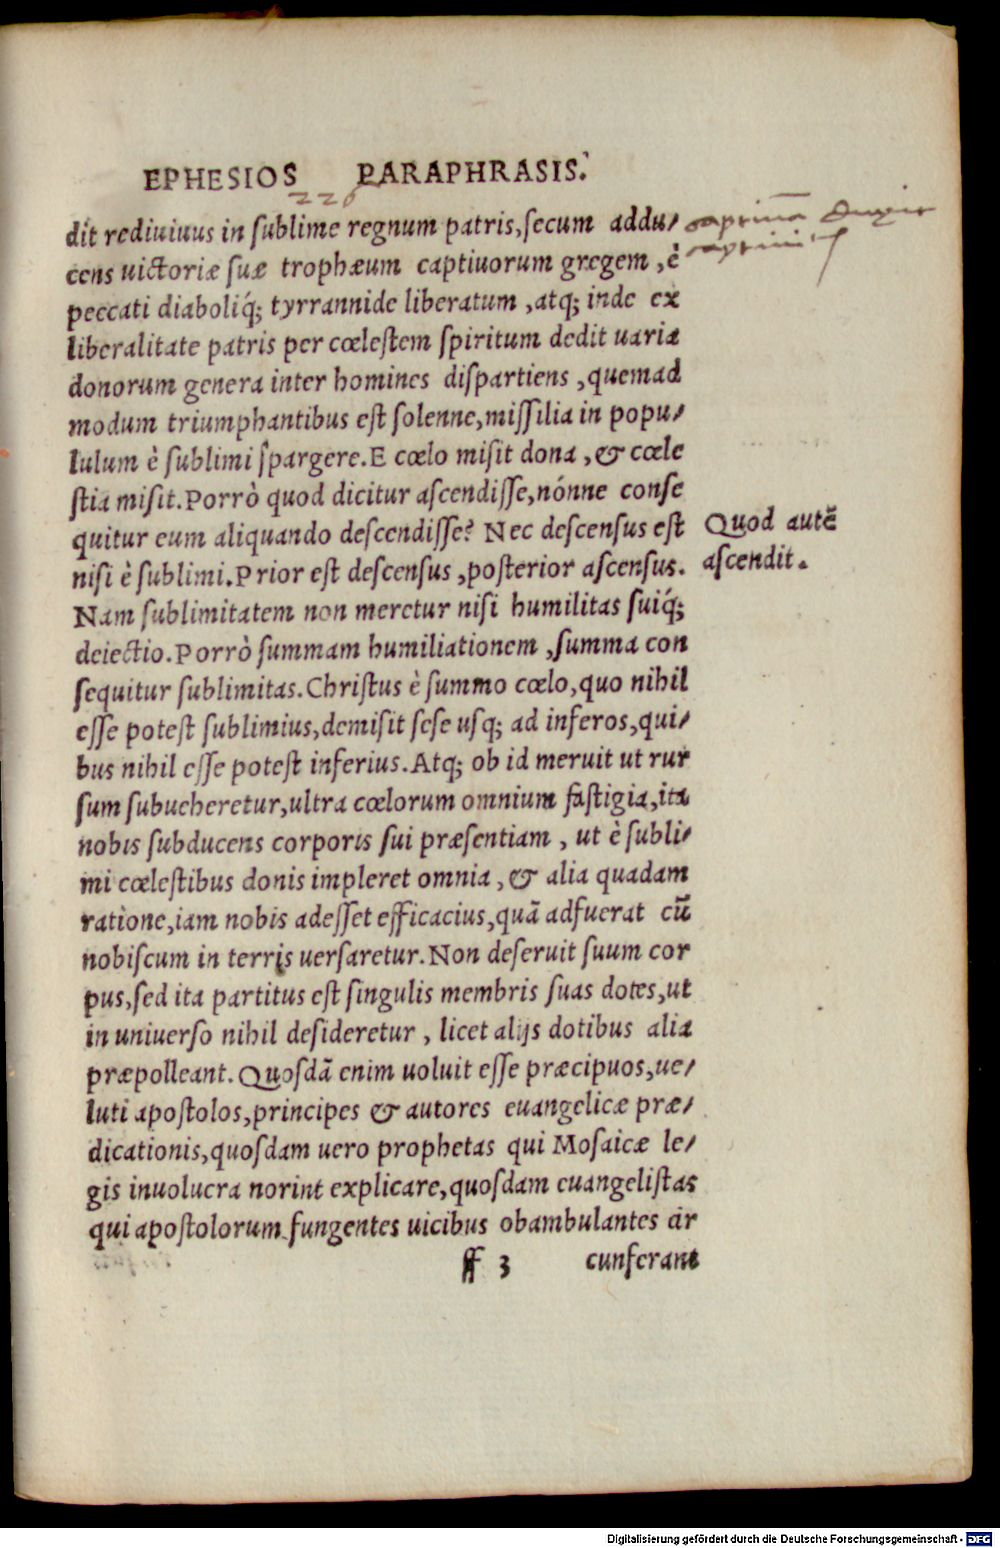 EPHESIOS PARAPHRASIS.
226
dit rediuiuus in ſublime regnum patris,ſecum addu/
cens uictoriæ ſuæ trophæum captiuorum gregem , è
peccati diaboliq́; tyrrannide liberatum , atq; inde ex
liberalitate patris per cœleſtem ſpiritum dedit uaria
donorum genera inter homines diſpartiens , quemad
modum triumphantibus eſt ſolenne,miſſilia in popu/
lulum è ſublimi ſpargere. E cœlo miſit dona , & cœle
ſtia miſit. Porrò quod dicitur aſcendiſſe,nónne conſe
quitur eum aliquando deſcendiſſe? Nec deſcenſus eſt
niſi è ſublimi. Prior eſt deſcenſus , poſterior aſcenſus.
Nam ſublimitatem non meretur niſi humilitas ſuiq́;
deiectio. Porrò ſummam humiliationem , ſumma con
ſequitur ſublimitas. Chriſtus è ſummo cœlo, quo nihil
eſſe poteſt ſublimius,demiſit ſeſe uſq; ad inferos,qui/
bus nihil eſſe poteſt inferius. Atq; ob id meruit ut rur
ſum ſubueheretur,ultra cœlorum omnium faſtigia,ita
nobis ſubducens corporis ſui præſentiam , ut è ſubli/
mi cœleſtibus donis impleret omnia , & alia quadam
ratione,iam nobis adeſſet efficacius,quã adfuerat cũ
nobiſcum in terris uerſaretur. Non deſeruit ſuum cor
pus,ſed ita partitus eſt ſingulis membris ſuas dotes,ut
in uniuerſo nihil deſideretur , licet alijs dotibus alia
præpolleant. Quoſdã enim uoluit eſſe præcipuos,ue/
luti apoſtolos,principes & autores euangelicæ præ/
dicationis,quoſdam uero prophetas qui Moſaicæ le/
gis inuolucra norint explicare,quoſdam euangeliſtas
qui apoſtolorum fungentes uicibus obambulantes cir
ff 3 cunferant
Quod autẽ
aſcendit.
Digitalisierung gefördert durch die Deutsche Forschungsgemeinschaft - DFG